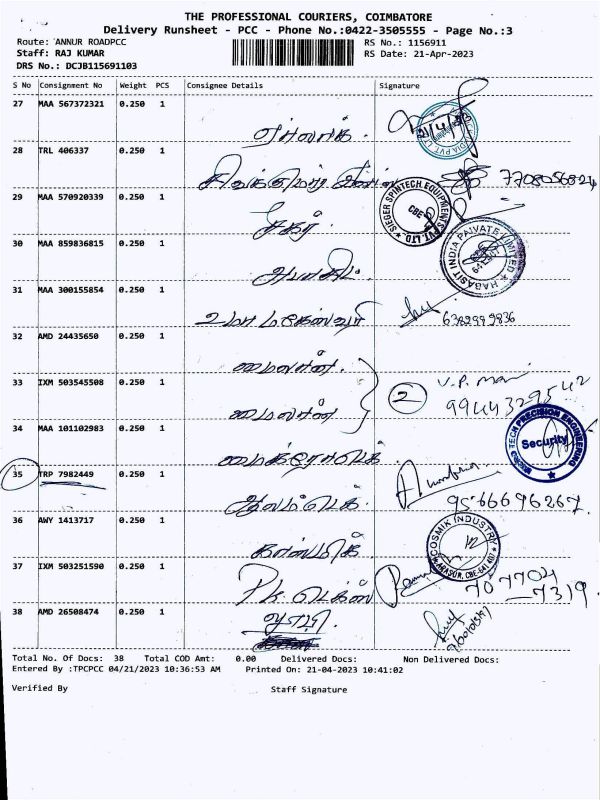 THE PROFESSIONAL COURIERS, COIMBATORE
Delivery Runsheet - PCC - Phone No.:0422-3505555 - Page No.:3
Route: ANNUR ROADPCC RS No.: 1156911
Staff: RAJ KUMAR RS Date: 21-Apr-2023
DRS No.: DCJB115691103
S No Consignment No Weight PCS Consignee Details Signature
27 MAA 567372321 0.250 1
28 TRL 406337 0.250 1
7708056824
29 MAA 570920339 0.250 1
சேகர்
SIEGER SPINTECH EQUIPMENTS PVT. LTD CBE
30 MAA 859836815 0.250 1
HABASIT INDIA PRIVATE LIMITED
31 MAA 300155854 0.250 1
உமா மகேஸ்வரி 6382999836
32 AMD 24435650 0.250 1
மைலான்.
33 IXM 503545508 0.250 1
மைலான் 2 V.P. 9944329542
34 MAA 101102983 0.250 1
MICRO TECH PRECISION ENGINEERING Security
35 TRP 7982449 0.250 1
9566696267
36 AWY 1413717 0.250 1
காஸ்மிக் COSMIK INDUSTRY ARASUR, CBE-641 407
37 IXM 503251590 0.250 1
P.S. டெக்ஸ் 707704
7319
38 AMD 26508474 0.250 1
Total No. Of Docs: 38 Total COD Amt: 0.00 Delivered Docs: Non Delivered Docs:
Entered By :TPCPCC 04/21/2023 10:36:53 AM Printed On: 21-04-2023 10:41:02
Verified By Staff Signature